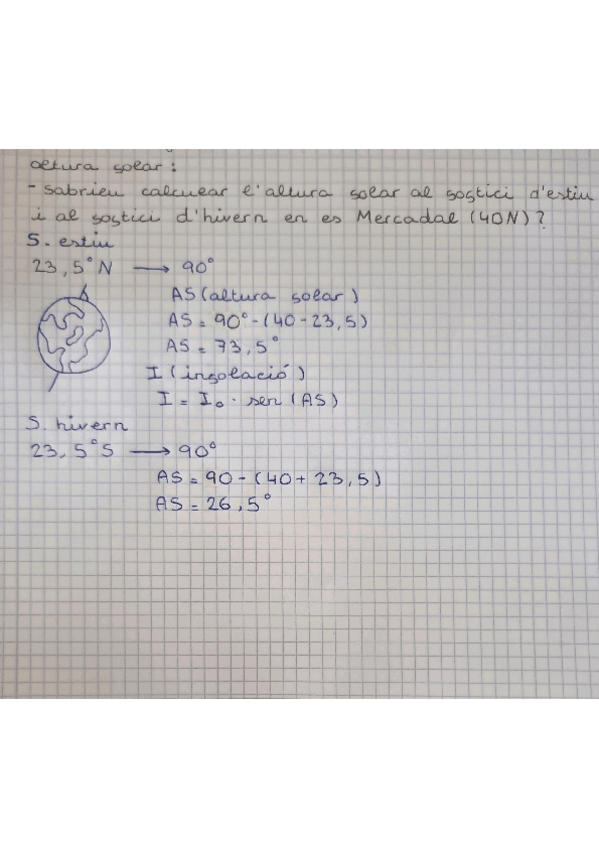 altura solar:
- Sabrieu calcular l'altura solar al sostici d'estiu
i al sostici d'hivern en es Mercadal (40N)?
S. estiu
23,5°N → 90°
AS (altura solar)
AS = 90° - (40 - 23,5)
AS = 73,5°
I (insolació)
I = I₀ · sen (AS)
S. hivern
23,5°S → 90°
AS = 90 - (40 + 23,5)
AS = 26,5°